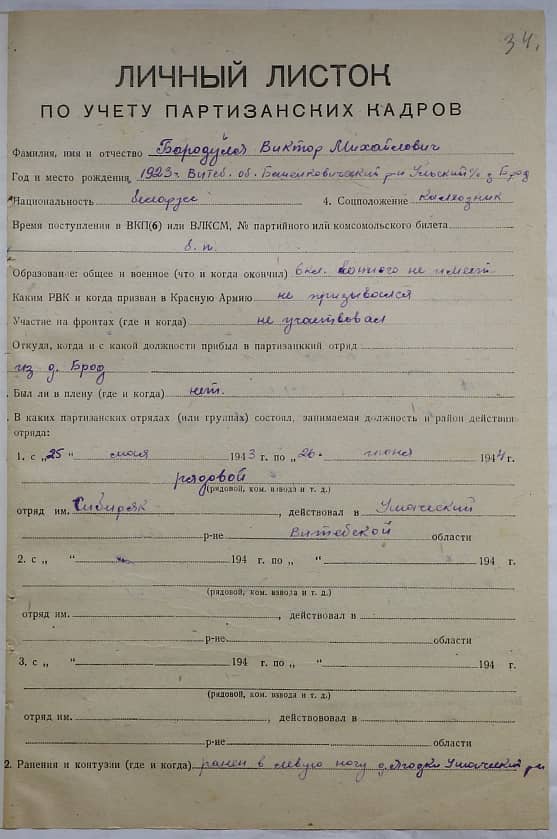 34.
ЛИЧНЫЙ ЛИСТОК
ПО УЧЕТУ ПАРТИЗАНСКИХ КАДРОВ
Фамилия, имя и отчество Бородуля Виктор Михайлович
Год и место рождения 1923 г. Витеб. об. Бешенковический р-н Ульский с/с д Брод
Национальность белорус 4. Соцположение колхозник
Время поступления в ВКП(б) или ВЛКСМ, № партийного или комсомольского билета
б. п.
Образование: общее и военное (что и когда окончил) 6 кл. военного не имеет
Каким РВК и когда призван в Красную Армию не призывался
Участие на фронтах (где и когда) не участвовал
Откуда, когда и с какой должности прибыл в партизанкий отряд
из д. Брод
Был ли в плену (где и когда) нет.
В каких партизанских отрядах (или группах) состоял, занимаемая должность и район действия
отряда:
1. с „25 “ мая 1943 г. по „26. “ июня 1944 г.
рядовой
(рядовой, ком. взвода и т. д.)
отряд им. Сибиряк , действовал в Ушачский
р-не Витебской области
2. с „ “ 194 г. по „ “ 194 г.
(рядовой, ком. взвода и т. д.)
отряд им. , действовал в
р-не области
3. с „ “ 194 г. по „ “ 194 г.
(рядовой, ком. взвода и т. д.)
отряд им. , действововал в
р-не области
2. Ранения и контузии (где и когда) ранен в левую ногу д. Ушачский р-н